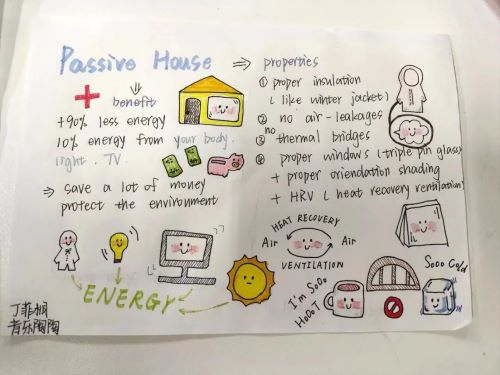 Passive House ⇒ properties
⇓
+ benefit
+90% less energy
10% energy from your body.
light. TV
⇒ save a lot of money
protect the environment
① proper insulation
( like winter jacket )
② no air-leakages
③ no thermal bridges
④ proper windows ( triple pin glass )
+ proper oriendation shading
+ HRV ( heat recovery ventilation )
HEAT RECOVERY
Air Air
VENTILATION
ENERGY
I'm SoOo
HoOoT
SoOo Cold
丁菲桐
音乐陶陶